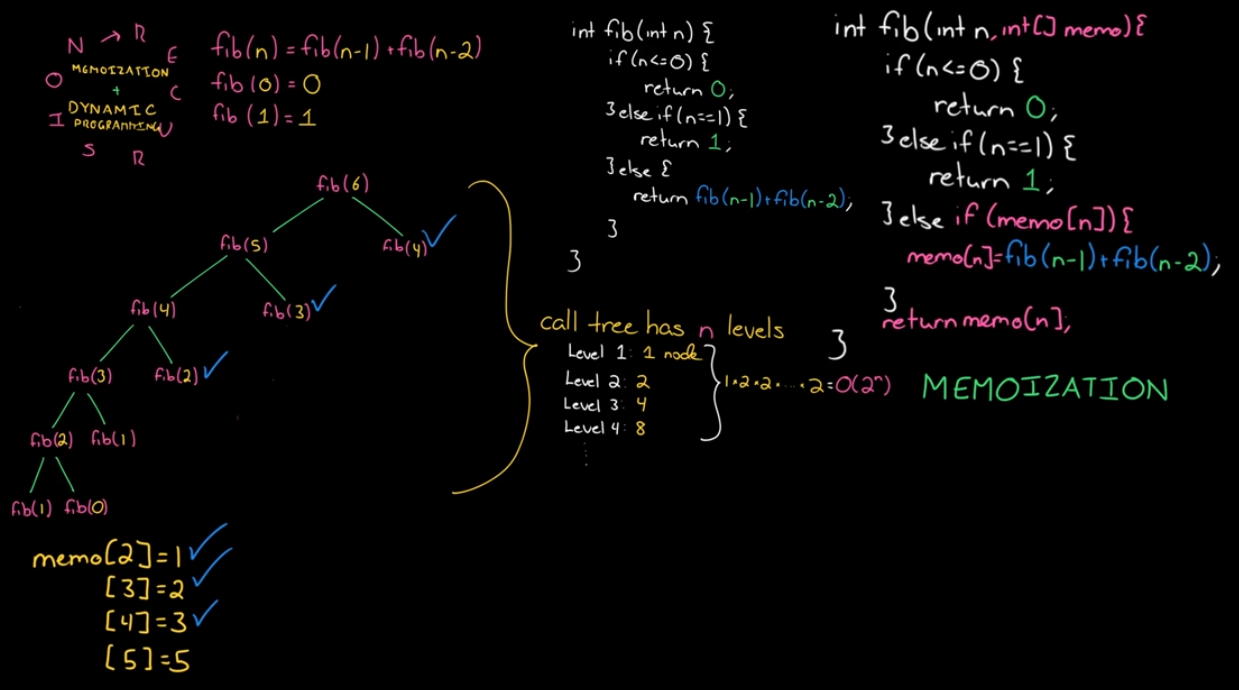 RECURSION
MEMOIZATION
+
DYNAMIC
PROGRAMMING
fib(n) = fib(n-1) + fib(n-2)
fib(0) = 0
fib(1) = 1
fib(6)
fib(5) fib(4)
fib(4) fib(3)
fib(3) fib(2)
fib(2) fib(1)
fib(1) fib(0)
memo[2]=1
[3]=2
[4]=3
[5]=5
int fib(int n) {
if(n<=0) {
return 0;
}else if(n==1) {
return 1;
}else {
return fib(n-1)+fib(n-2);
}
}
call tree has n levels
Level 1: 1 node
Level 2: 2
Level 3: 4
Level 4: 8
1*2*2*...*2=O(2ⁿ)
int fib(int n, int[] memo){
if(n<=0) {
return 0;
}else if(n==1) {
return 1;
}else if(memo[n]){
memo[n]=fib(n-1)+fib(n-2);
}
return memo[n];
}
MEMOIZATION